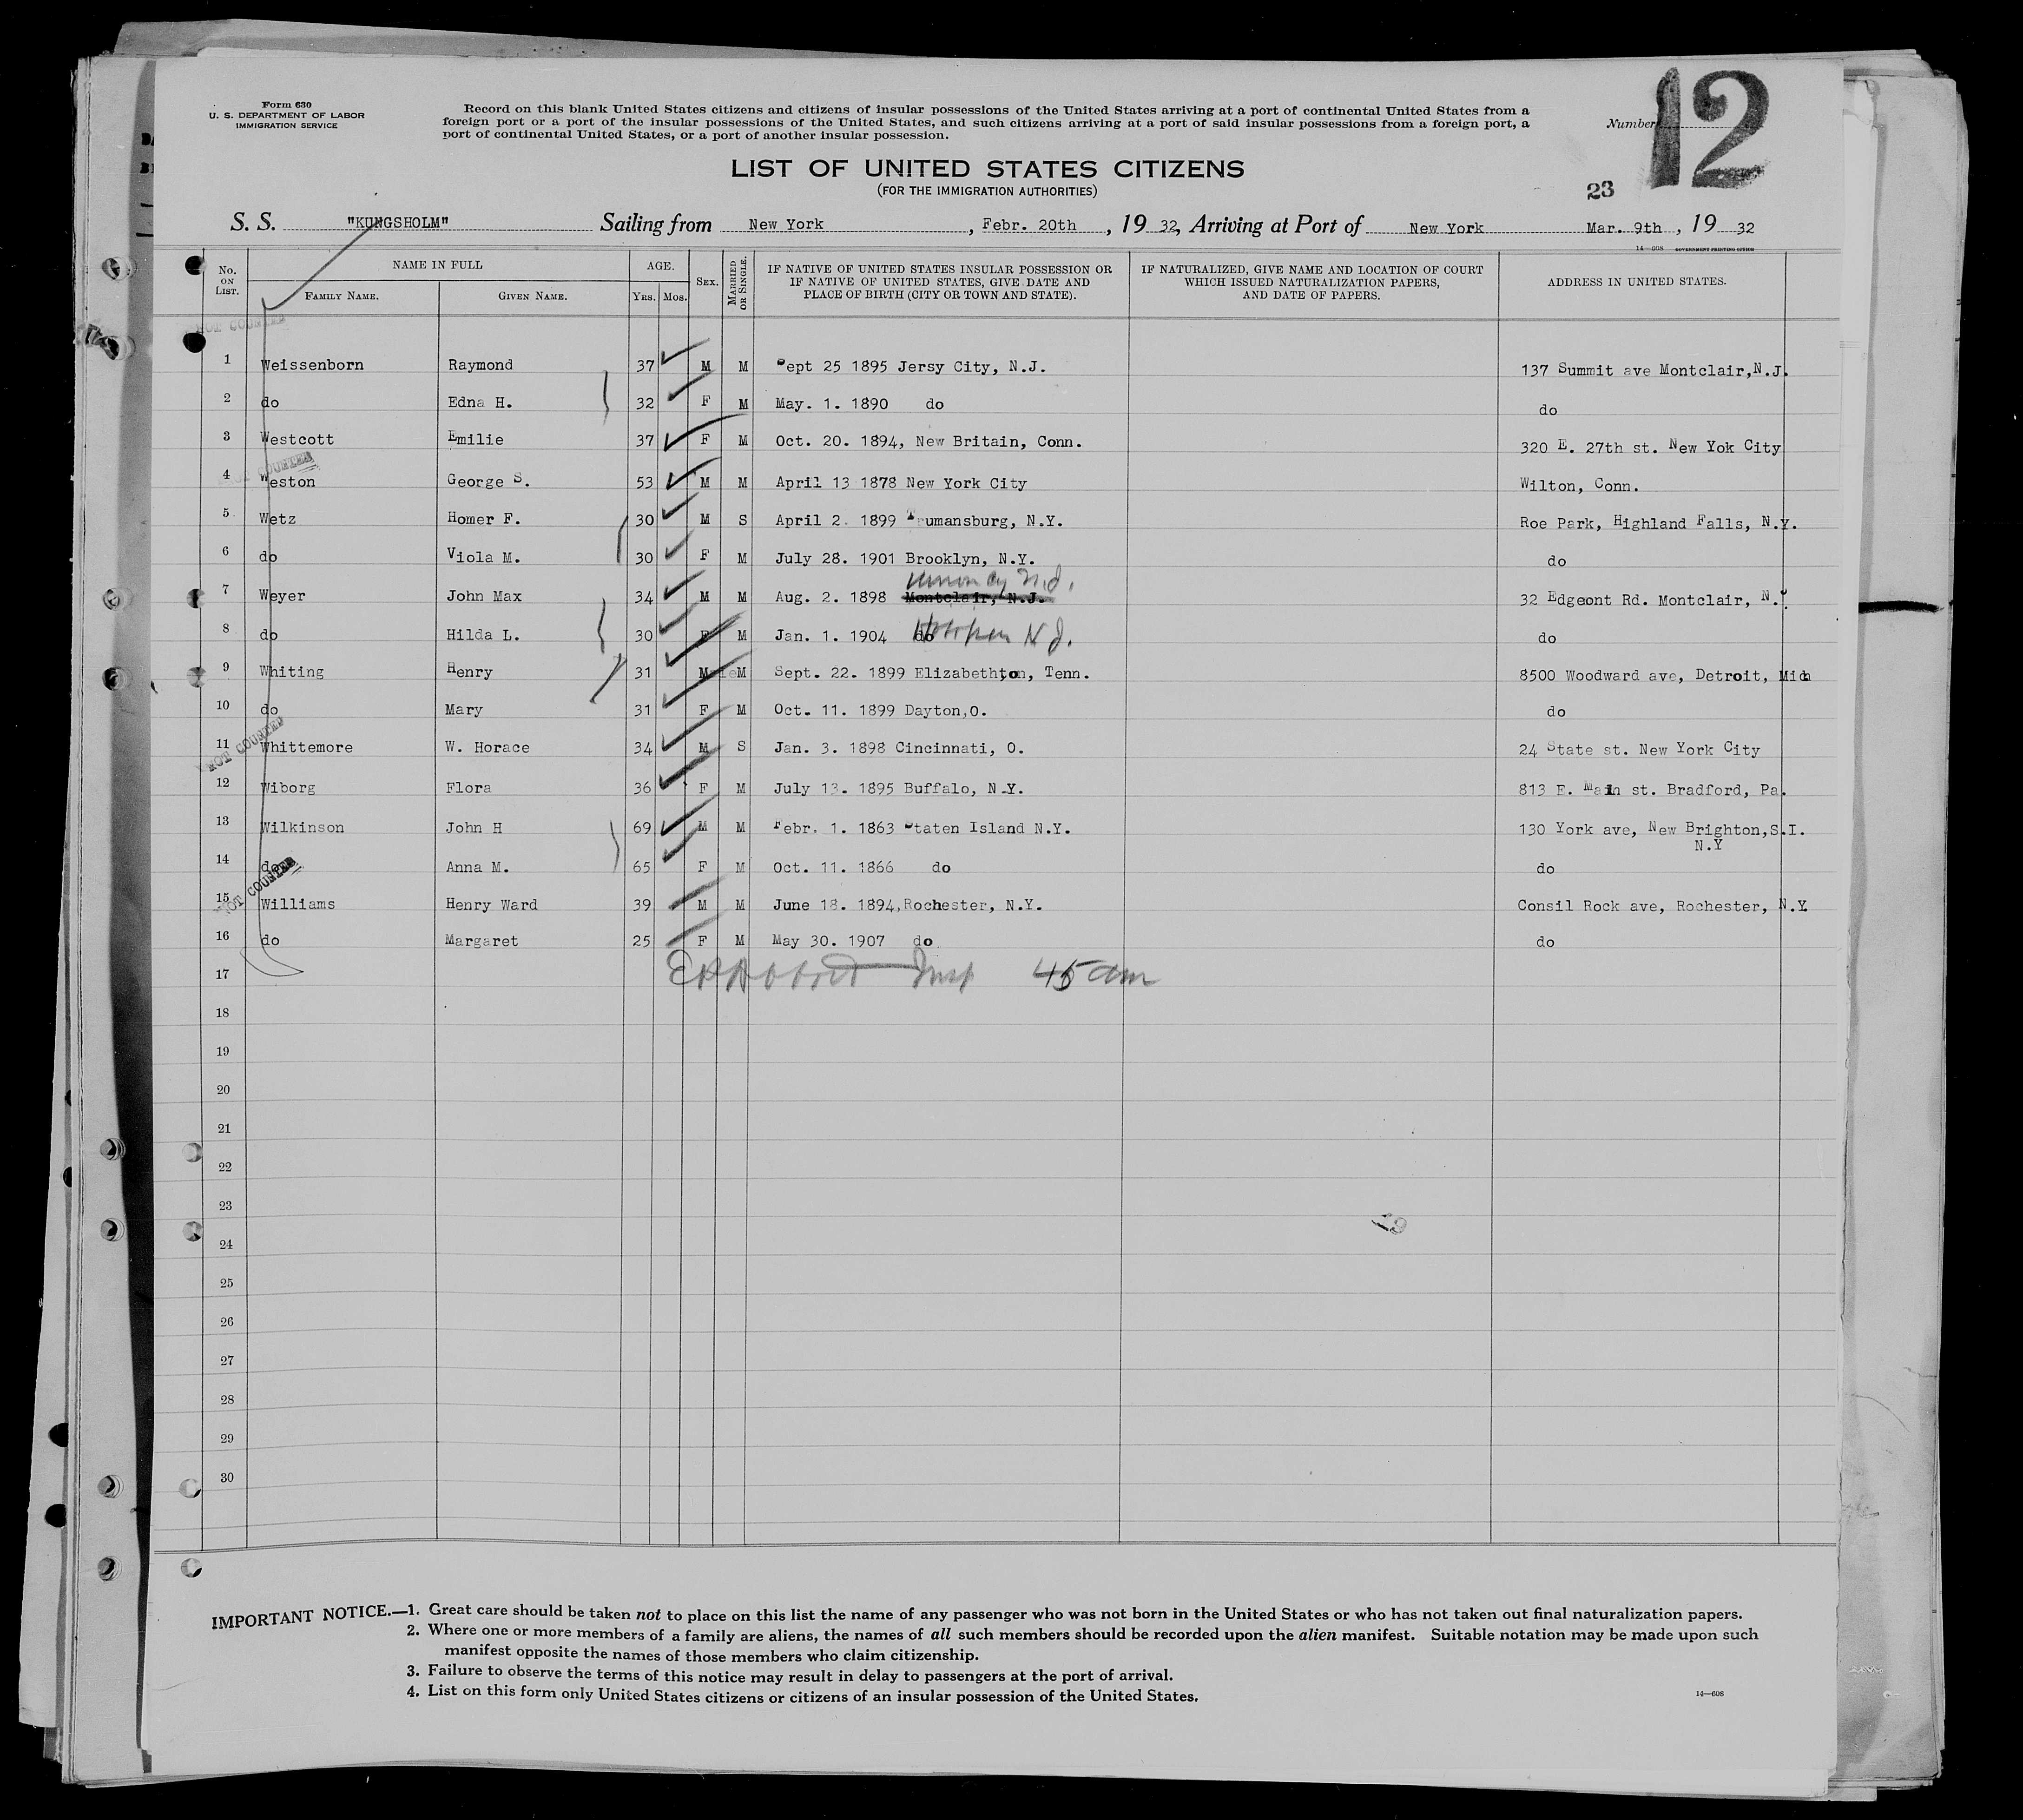 Form 630
U. S. DEPARTMENT OF LABOR
IMMIGRATION SERVICE
Record on this blank United States citizens and citizens of insular possessions of the United States arriving at a port of continental United States from a
foreign port or a port of the insular possessions of the United States, and such citizens arriving at a port of said insular possessions from a foreign port, a
port of continental United States, or a port of another insular possession.
Number 12
LIST OF UNITED STATES CITIZENS
(FOR THE IMMIGRATION AUTHORITIES)
23
S. S. "KUNGSHOLM" Sailing from New York , Febr. 20th , 19 32, Arriving at Port of New York Mar. 9th , 19 32
14—608 GOVERNMENT PRINTING OFFICE
No. ON LIST. NAME IN FULL AGE. SEX. MARRIED OR SINGLE. IF NATIVE OF UNITED STATES INSULAR POSSESSION OR IF NATIVE OF UNITED STATES, GIVE DATE AND PLACE OF BIRTH (CITY OR TOWN AND STATE). IF NATURALIZED, GIVE NAME AND LOCATION OF COURT WHICH ISSUED NATURALIZATION PAPERS, AND DATE OF PAPERS. ADDRESS IN UNITED STATES.
FAMILY NAME. GIVEN NAME. YRS. MOS.
NOT COUNTED
1 Weissenborn Raymond 37 M M Sept 25 1895 Jersy City, N.J. 137 Summit ave Montclair,N.J.
2 do Edna H. 32 F M May. 1. 1890 do do
3 Westcott Emilie 37 F M Oct. 20. 1894, New Britain, Conn. 320 E. 27th st. New Yok City
NOT COUNTED
4 Weston George S. 53 M M April 13 1878 New York City Wilton, Conn.
5 Wetz Homer F. 30 M S April 2. 1899 Trumansburg, N.Y. Roe Park, Highland Falls, N.Y.
6 do Viola M. 30 F M July 28. 1901 Brooklyn, N.Y. do
Union Cy N.J.
7 Weyer John Max 34 M M Aug. 2. 1898 Montclair, N.J. 32 Edgeont Rd. Montclair, N.
8 do Hilda L. 30 F M Jan. 1. 1904 do N J. do
9 Whiting Henry 31 M M Sept. 22. 1899 Elizabethton, Tenn. 8500 Woodward ave, Detroit, Mich
10 do Mary 31 F M Oct. 11. 1899 Dayton,O. do
NOT COUNTED
11 Whittemore W. Horace 34 M S Jan. 3. 1898 Cincinnati, O. 24 State st. New York City
12 Wiborg Flora 36 F M July 13. 1895 Buffalo, N.Y. 813 E. Main st. Bradford, Pa.
13 Wilkinson John H 69 M M Febr. 1. 1863 Staten Island N.Y. 130 York ave, New Brighton,S.I.
N.Y
14 do Anna M. 65 F M Oct. 11. 1866 do do
NOT COUNTED
15 Williams Henry Ward 39 M M June 18. 1894,Rochester, N.Y. Consil Rock ave, Rochester, N.Y.
16 do Margaret 25 F M May 30. 1907 do. do
17 Insp 45 am
18
19
20
21
22
23
19
24
25
26
27
28
29
30
IMPORTANT NOTICE.—1. Great care should be taken not to place on this list the name of any passenger who was not born in the United States or who has not taken out final naturalization papers.
2. Where one or more members of a family are aliens, the names of all such members should be recorded upon the alien manifest. Suitable notation may be made upon such
manifest opposite the names of those members who claim citizenship.
3. Failure to observe the terms of this notice may result in delay to passengers at the port of arrival.
4. List on this form only United States citizens or citizens of an insular possession of the United States.
14—608